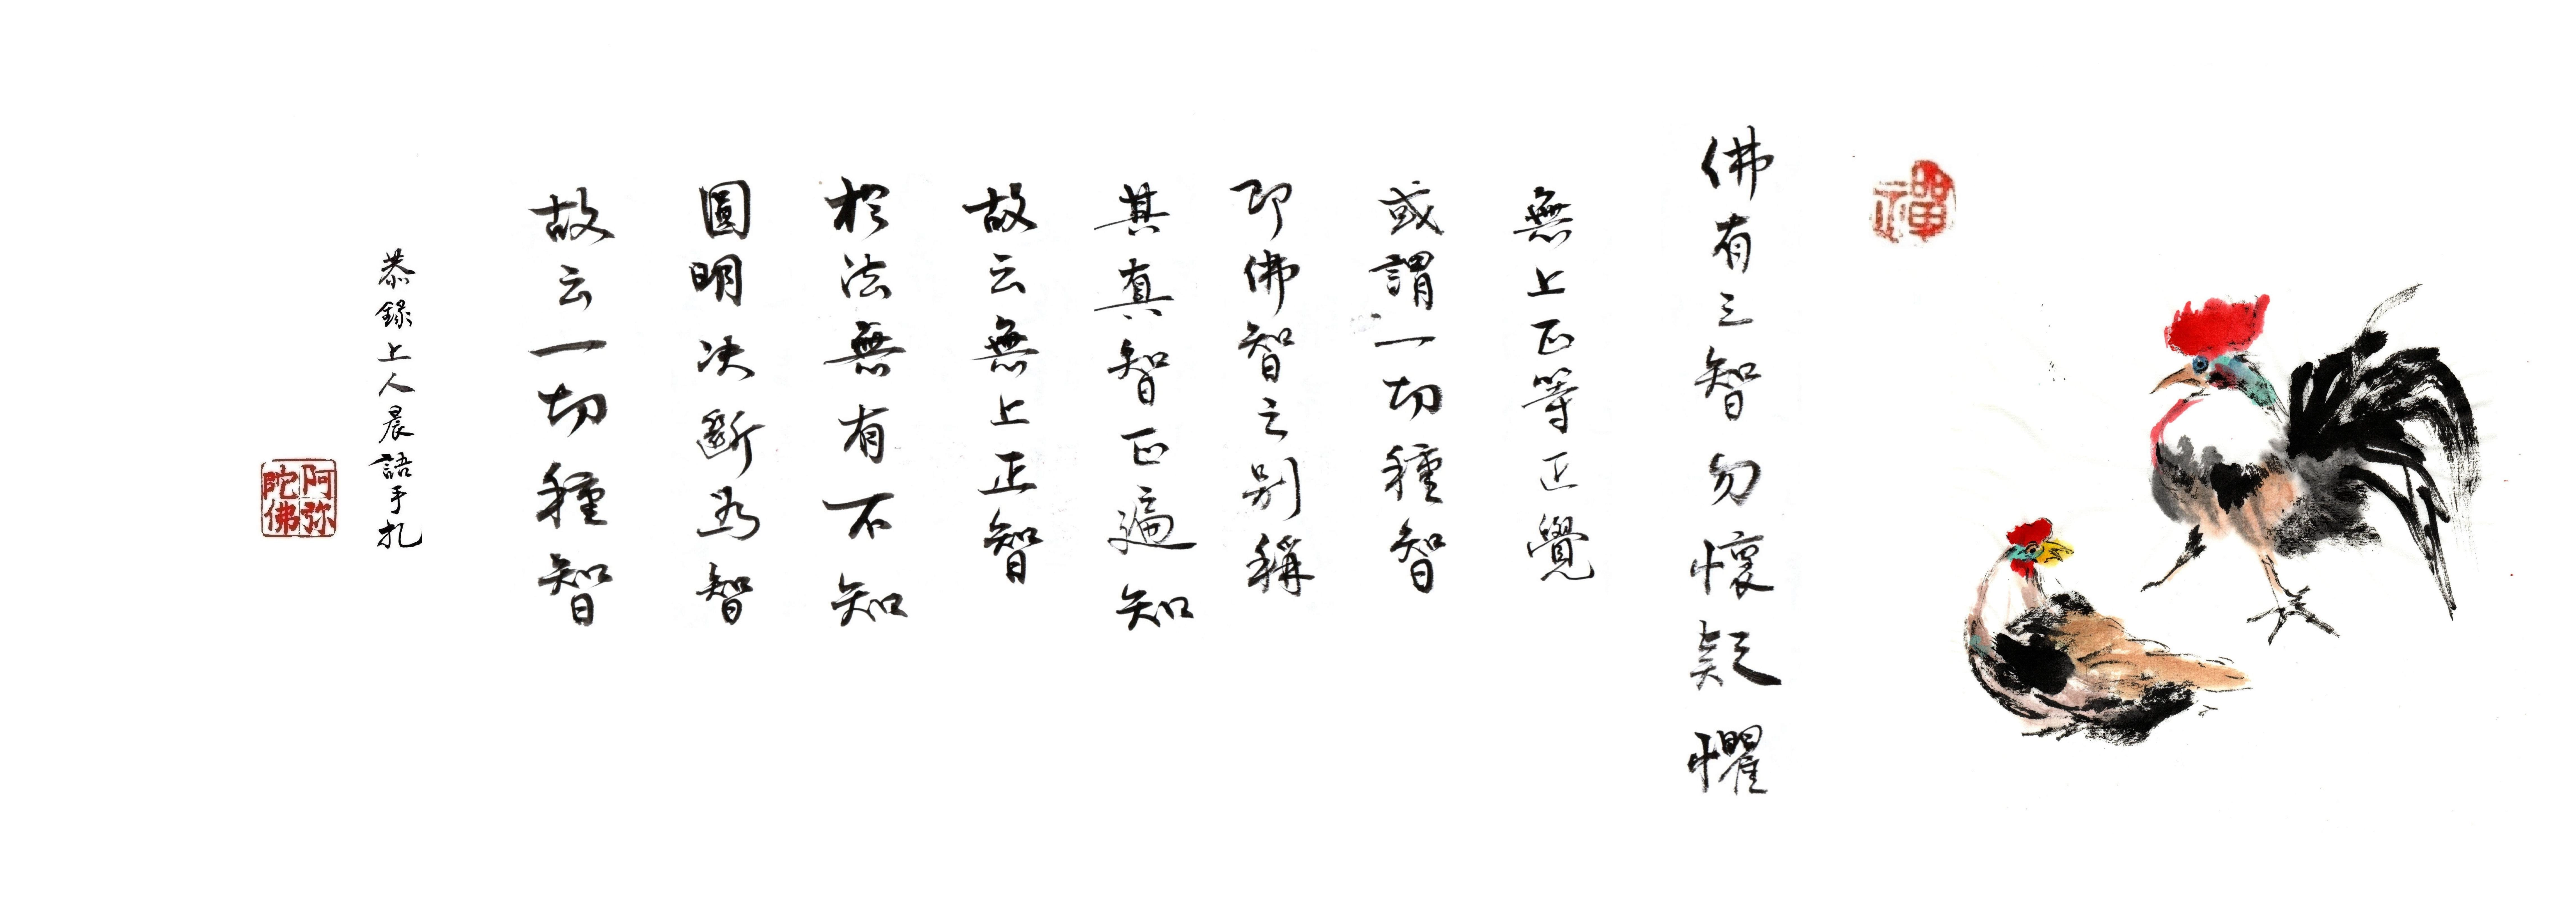 禪
佛有三智勿懷疑懼
無上正等正覺
或謂一切種智
即佛智之別稱
其真智正遍知
故云無上正智
於法無有不知
圓明决斷為智
故云一切種智
恭錄上人晨語手扎
阿弥
陀佛